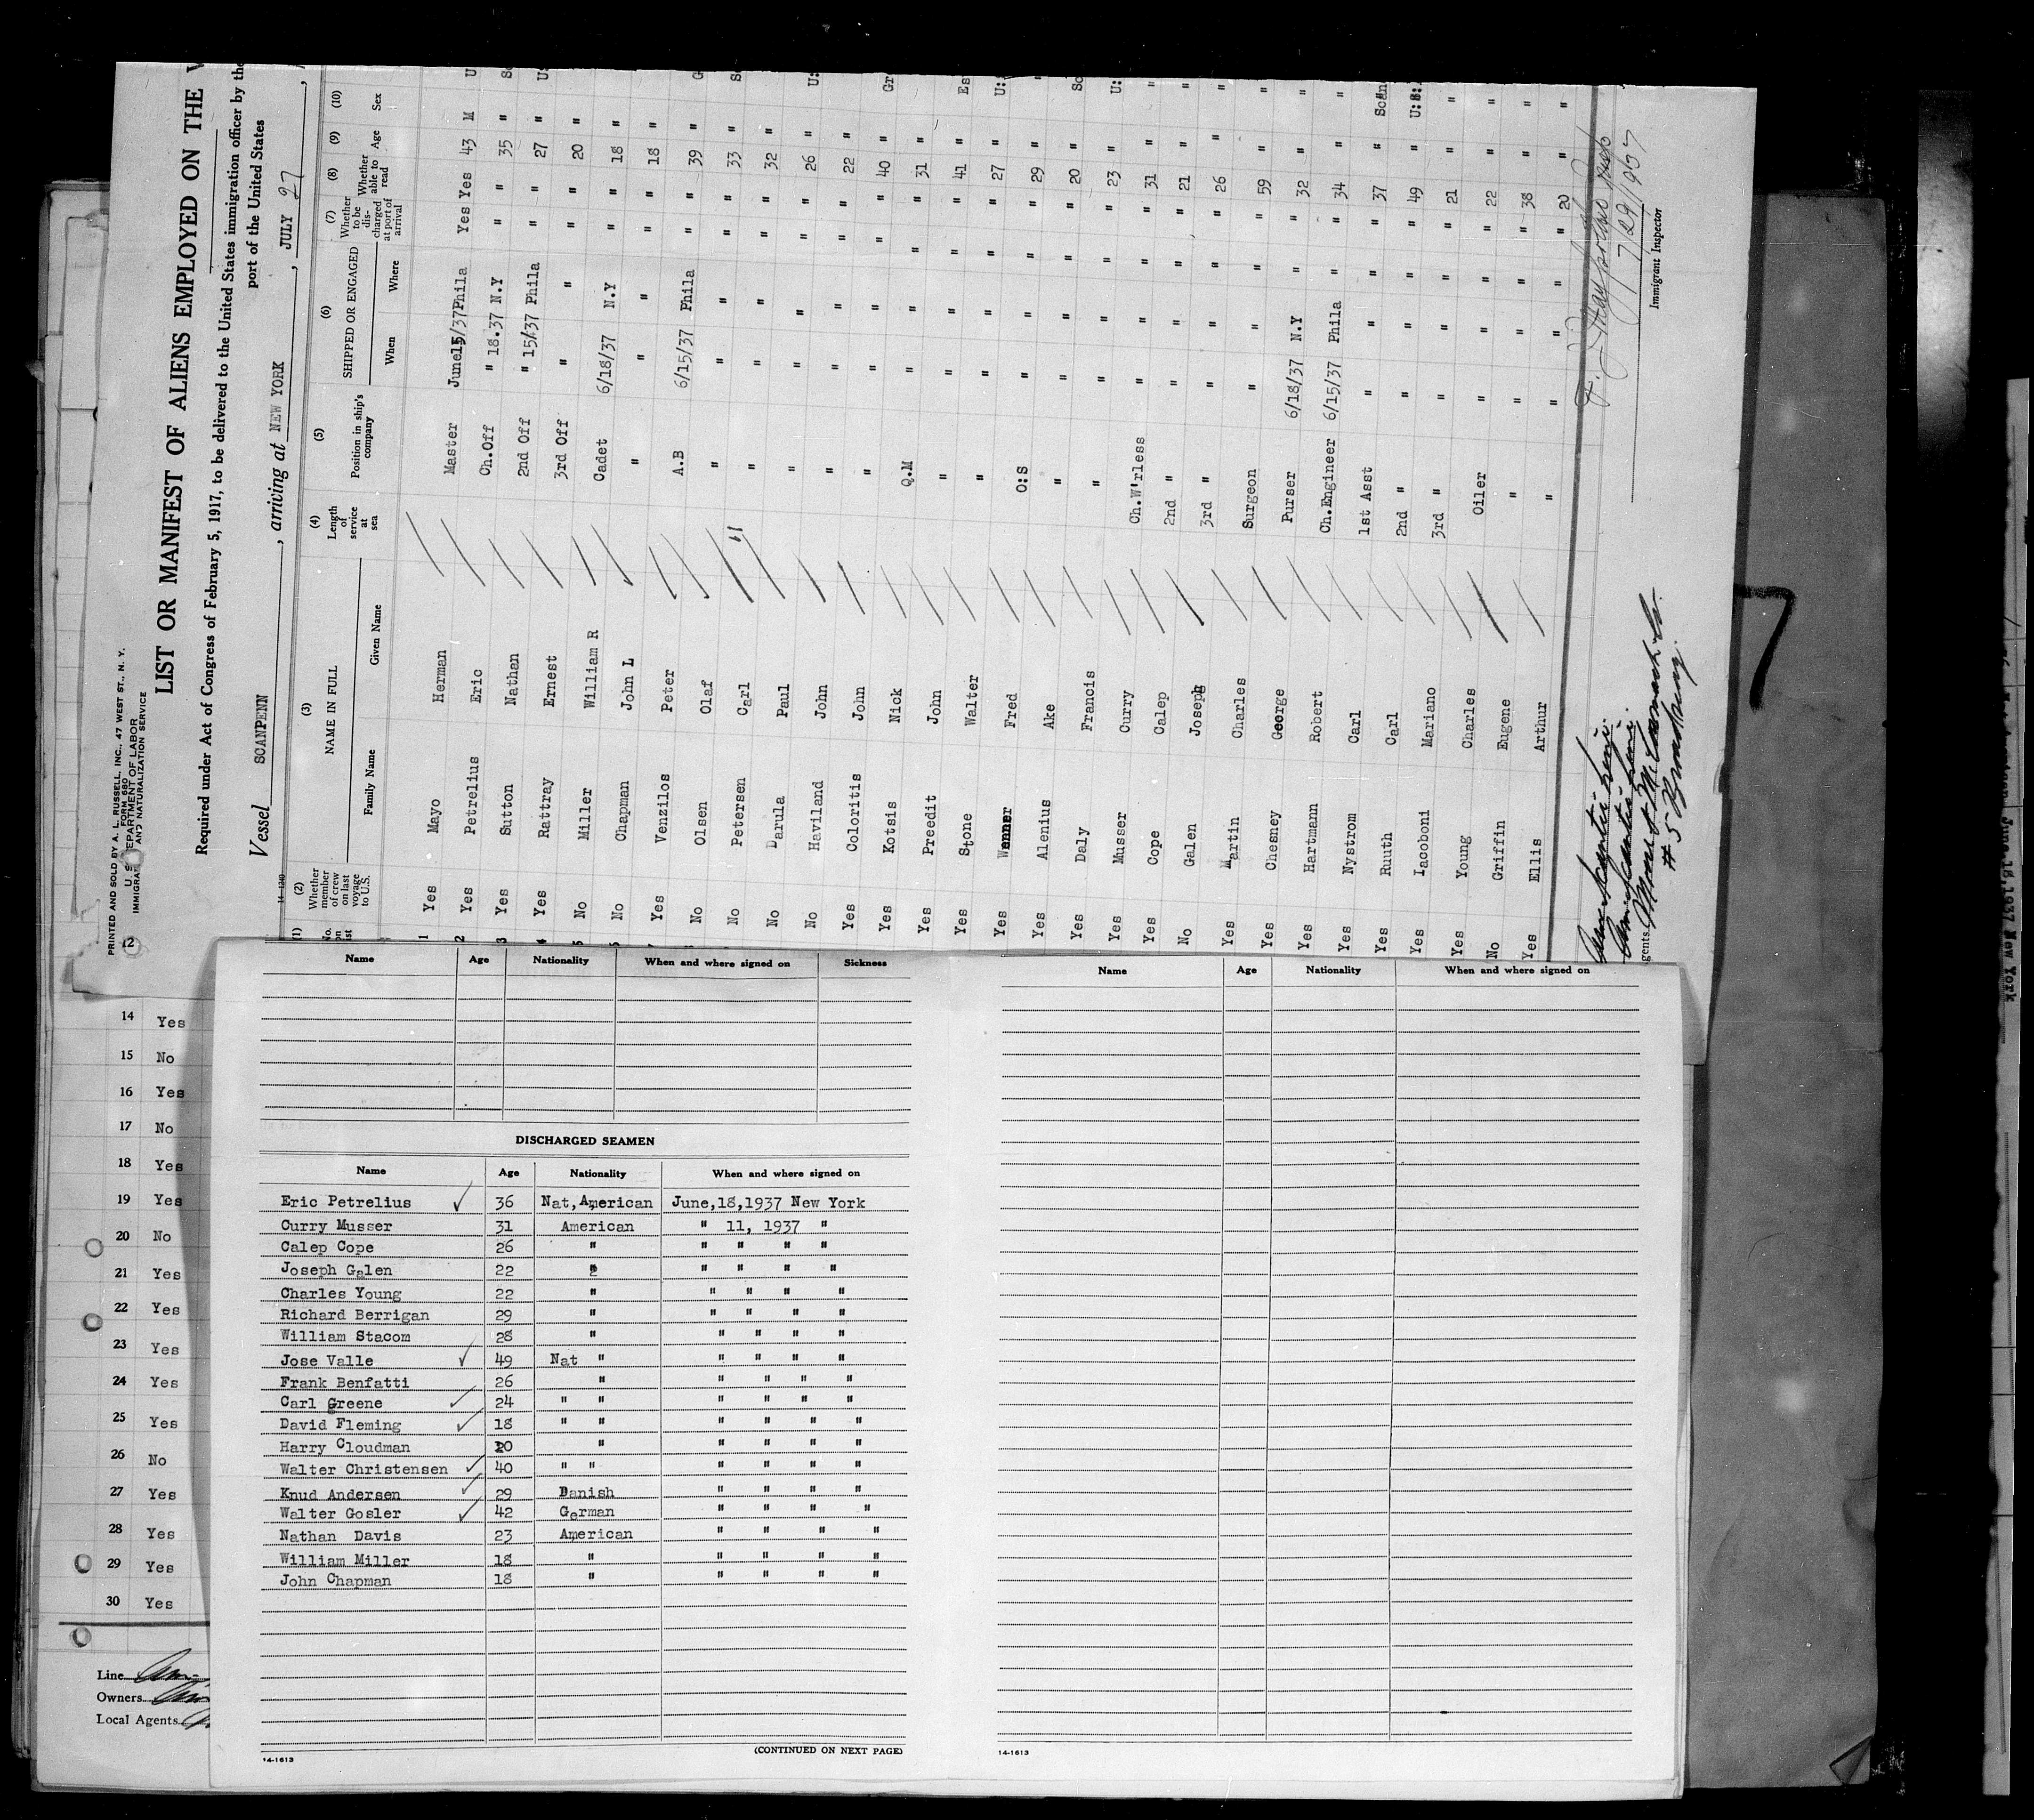 PRINTED AND SOLD BY A. L. RUSSELL, INC., 47 WEST ST., N. Y.
FORM 680
U. S. DEPARTMENT OF LABOR
IMMIGRATION AND NATURALIZATION SERVICE
LIST OR MANIFEST OF ALIENS EMPLOYED ON THE
Required under Act of Congress of February 5, 1917, to be delivered to the United States immigration officer by the
port of the United States
Vessel SCANPENN, arriving at NEW YORK, JULY 27,
14-1240
(1) (2) (3) (4) (5) (6) (7) (8) (9) (10)
No. on list Whether member of crew on last voyage to U.S. NAME IN FULL Length of service at sea Position in ship's company SHIPPED OR ENGAGED Whether to be discharged at port of arrival Whether able to read Age Sex
Family Name Given Name When Where
1 Yes Mayo Herman Master June15/37 Phila Yes Yes 43 M
2 Yes Petrelius Eric Ch.Off " 18.37 N.Y " " 35 "
3 Yes Sutton Nathan 2nd Off " 15/37 Phila " " 27 "
4 Yes Rattray Ernest 3rd Off " " " " 20 "
5 No Miller William R Cadet 6/18/37 N.Y " " 18 "
No Chapman John L " " " " " 18 "
Yes Venzilos Peter A.B 6/15/37 Phila " " 39 "
No Olsen Olaf " " " " " 33 "
No Petersen Carl " " " " " 32 "
No Darula Paul " " " " " 26 "
No Haviland John " " " " " 22 "
Yes Coloritis John " " " " " 40 "
Yes Kotsis Nick Q.M " " " " 31 "
Yes Preedit John " " " " " 41 "
Yes Stone Walter " " " " " 27 "
Yes Wanner Fred O:S " " " " 29 "
Yes Alenius Ake " " " " " 20 "
Yes Daly Francis " " " " " 23 "
Yes Musser Curry Ch.W'rless " " " " 31 "
Yes Cope Calep 2nd " " " " " 21 "
No Galen Joseph 3rd " " " " " 26 "
Yes Martin Charles Surgeon " " " " 59 "
Yes Chesney George Purser 6/18/37 N.Y " " 32 "
Yes Hartmann Robert Ch.Engineer 6/15/37 Phila " " 34 "
Yes Nystrom Carl 1st Asst " " " " 37 "
Yes Ruuth Carl 2nd " " " " " 49 "
Yes Iacoboni Mariano 3rd " " " " " 21 "
Yes Young Charles Oiler " " " " 22 "
No Griffin Eugene " " " " " 38 "
Yes Ellis Arthur " " " " " 20 "
7/29/1937
Immigrant Inspector
Agents. Moore & McCormack Co.
#5 Broadway
14 Yes
15 No
16 Yes
17 No
18 Yes
19 Yes
20 No
21 Yes
22 Yes
23 Yes
24 Yes
25 Yes
26 No
27 Yes
28 Yes
29 Yes
30 Yes
Line
Owners
Local Agents
Name Age Nationality When and where signed on Sickness
DISCHARGED SEAMEN
Name Age Nationality When and where signed on
Eric Petrelius 36 Nat,American June,18,1937 New York
Curry Musser 31 American " 11, 1937 "
Calep Cope 26 " " " " "
Joseph Galen 22 " " " " "
Charles Young 22 " " " " "
Richard Berrigan 29 " " " " "
William Stacom 28 " " " " "
Jose Valle 49 Nat " " " " "
Frank Benfatti 26 " " " " "
Carl Greene 24 " " " " " "
David Fleming 18 " " " " " "
Harry Cloudman 20 " " " " "
Walter Christensen 40 " " " " " "
Knud Andersen 29 Danish " " " "
Walter Gosler 42 German " " " "
Nathan Davis 23 American " " " "
William Miller 18 " " " " "
John Chapman 18 " " " " "
(CONTINUED ON NEXT PAGE)
14-1613
Name Age Nationality When and where signed on
14-1613
7
June,18,1937 New York